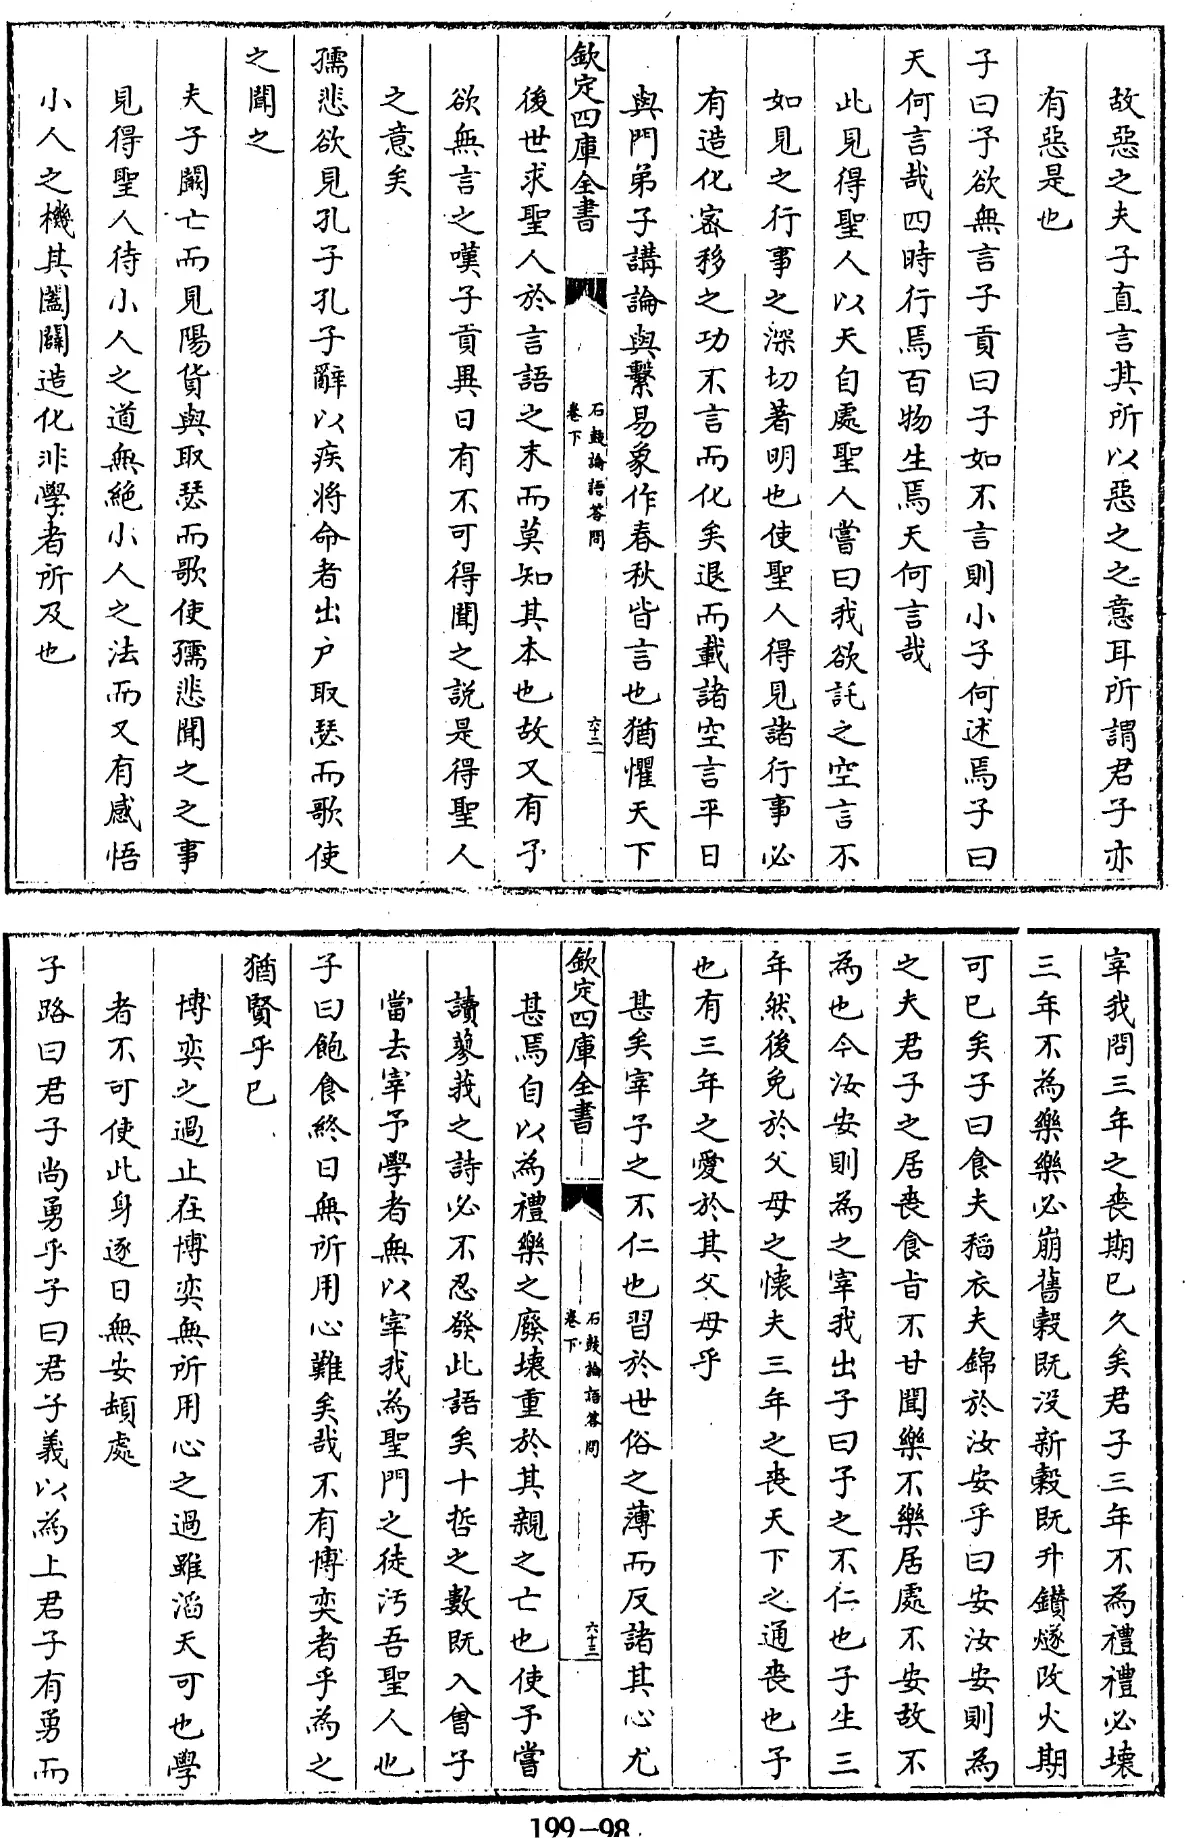 故惡之夫子直言其所以惡之之意耳所謂君子亦
有惡是也
子曰予欲無言子貢曰子如不言則小子何述焉子曰
天何言哉四時行焉百物生焉天何言哉
此見得聖人以天自處聖人嘗曰我欲託之空言不
如見之行事之深切著明也使聖人得見諸行事必
有造化密移之功不言而化矣退而載諸空言平日
與門弟子講論與繫易象作春秋皆言也猶懼天下
欽定四庫全書
石鼓論語答問
卷下
六十二
後世求聖人於言語之末而莫知其本也故又有予
欲無言之嘆子貢異日有不可得聞之説是得聖人
之意矣
孺悲欲見孔子孔子辭以疾將命者出户取瑟而歌使
之聞之
夫子闞亡而見陽貨與取瑟而歌使孺悲聞之之事
見得聖人待小人之道無絶小人之法而又有感悟
小人之機其闔闢造化非學者所及也
宰我問三年之喪期已久矣君子三年不為禮禮必壞
三年不為樂樂必崩舊穀既没新穀既升鑚燧改火期
可已矣子曰食夫稻衣夫錦於汝安乎曰安汝安則為
之夫君子之居喪食旨不甘聞樂不樂居處不安故不
為也今汝安則為之宰我出子曰予之不仁也子生三
年然後免於父母之懐夫三年之喪天下之通喪也予
也有三年之愛於其父母乎
甚矣宰予之不仁也習於世俗之薄而反諸其心尤
欽定四庫全書
石鼓論語答問
卷下
六十三
甚焉自以為禮樂之廢壞重於其親之亡也使予嘗
讀蓼莪之詩必不忍發此語矣十哲之數既入曾子
當去宰予學者無以宰我為聖門之徒汚吾聖人也
子曰飽食終日無所用心難矣哉不有博奕者乎為之
猶賢乎已
博奕之過止在博奕無所用心之過雖滔天可也學
者不可使此身逐日無安頓處
子路曰君子尚勇乎子曰君子義以為上君子有勇而
199-98